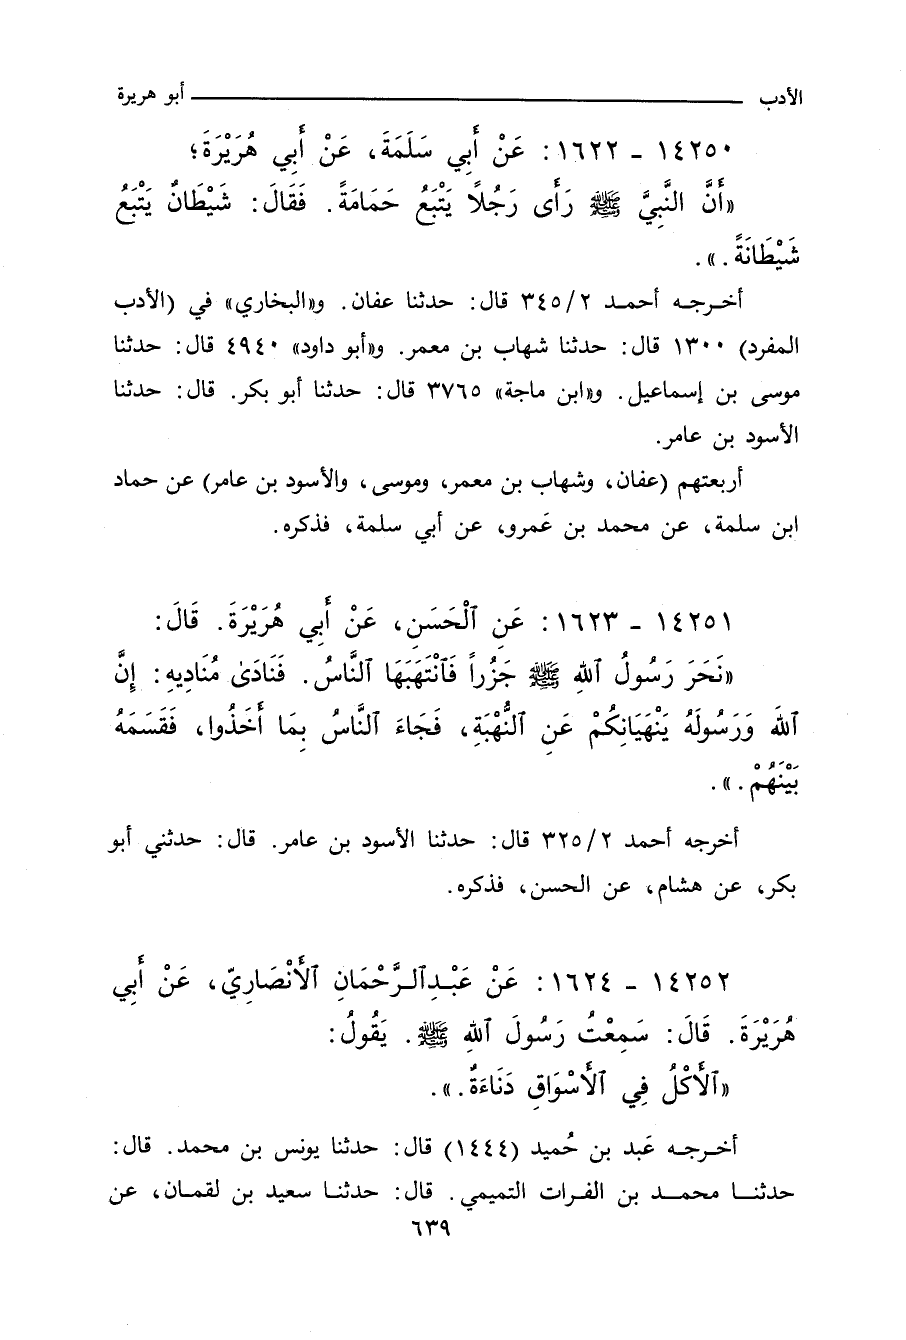 الأدب ــــــــــ أبو هريرة
١٤٢٥٠ ـ ١٦٢٢: عَنْ أَبِي سَلَمَةَ، عَنْ أَبِي هُرَيْرَةَ؛
«أَنَّ النَّبِيَّ ﷺ رَأَى رَجُلًا يَتْبَعُ حَمَامَةً. فَقَالَ: شَيْطَانٌ يَتْبَعُ
شَيْطَانَةً.».
أخرجه أحمد ٣٤٥/٢ قال: حدثنا عفان. و«البخاري» في (الأدب
المفرد) ١٣٠٠ قال: حدثنا شهاب بن معمر. و«أبو داود» ٤٩٤٠ قال: حدثنا
موسى بن إسماعيل. و«ابن ماجة» ٣٧٦٥ قال: حدثنا أبو بكر. قال: حدثنا
الأسود بن عامر.
أربعتهم (عفان، وشهاب بن معمر، وموسى، والأسود بن عامر) عن حماد
ابن سلمة، عن محمد بن عَمرو، عن أبي سلمة، فذكره.
١٤٢٥١ ـ ١٦٢٣: عَنِ ٱلْحَسَنِ، عَنْ أَبِي هُرَيْرَةَ. قَالَ:
«نَحَرَ رَسُولُ ٱللهِ ﷺ جَزُراً فَٱنْتَهَبَهَا ٱلنَّاسُ. فَنَادَىٰ مُنَادِيهِ: إِنَّ
ٱللهَ وَرَسُولَهُ يَنْهَيَانِكُمْ عَنِ ٱلنُّهْبَةِ، فَجَاءَ ٱلنَّاسُ بِمَا أَخَذُوا، فَقَسَمَهُ
بَيْنَهُمْ.».
أخرجه أحمد ٣٢٥/٢ قال: حدثنا الأسود بن عامر. قال: حدثني أبو
بكر، عن هشام، عن الحسن، فذكره.
١٤٢٥٢ ـ ١٦٢٤: عَنْ عَبْدِٱلرَّحْمَانِ ٱلأَنْصَارِيّ، عَنْ أَبِي
هُرَيْرَةَ. قَالَ: سَمِعْتُ رَسُولَ ٱللهِ ﷺ. يَقُولُ:
«ٱلأَكْلُ فِي ٱلأَسْوَاقِ دَنَاءَةٌ.».
أخرجه عَبد بن حُميد (١٤٤٤) قال: حدثنا يونس بن محمد. قال:
حدثنا محمد بن الفرات التميمي. قال: حدثنا سعيد بن لقمان، عن
٦٣٩